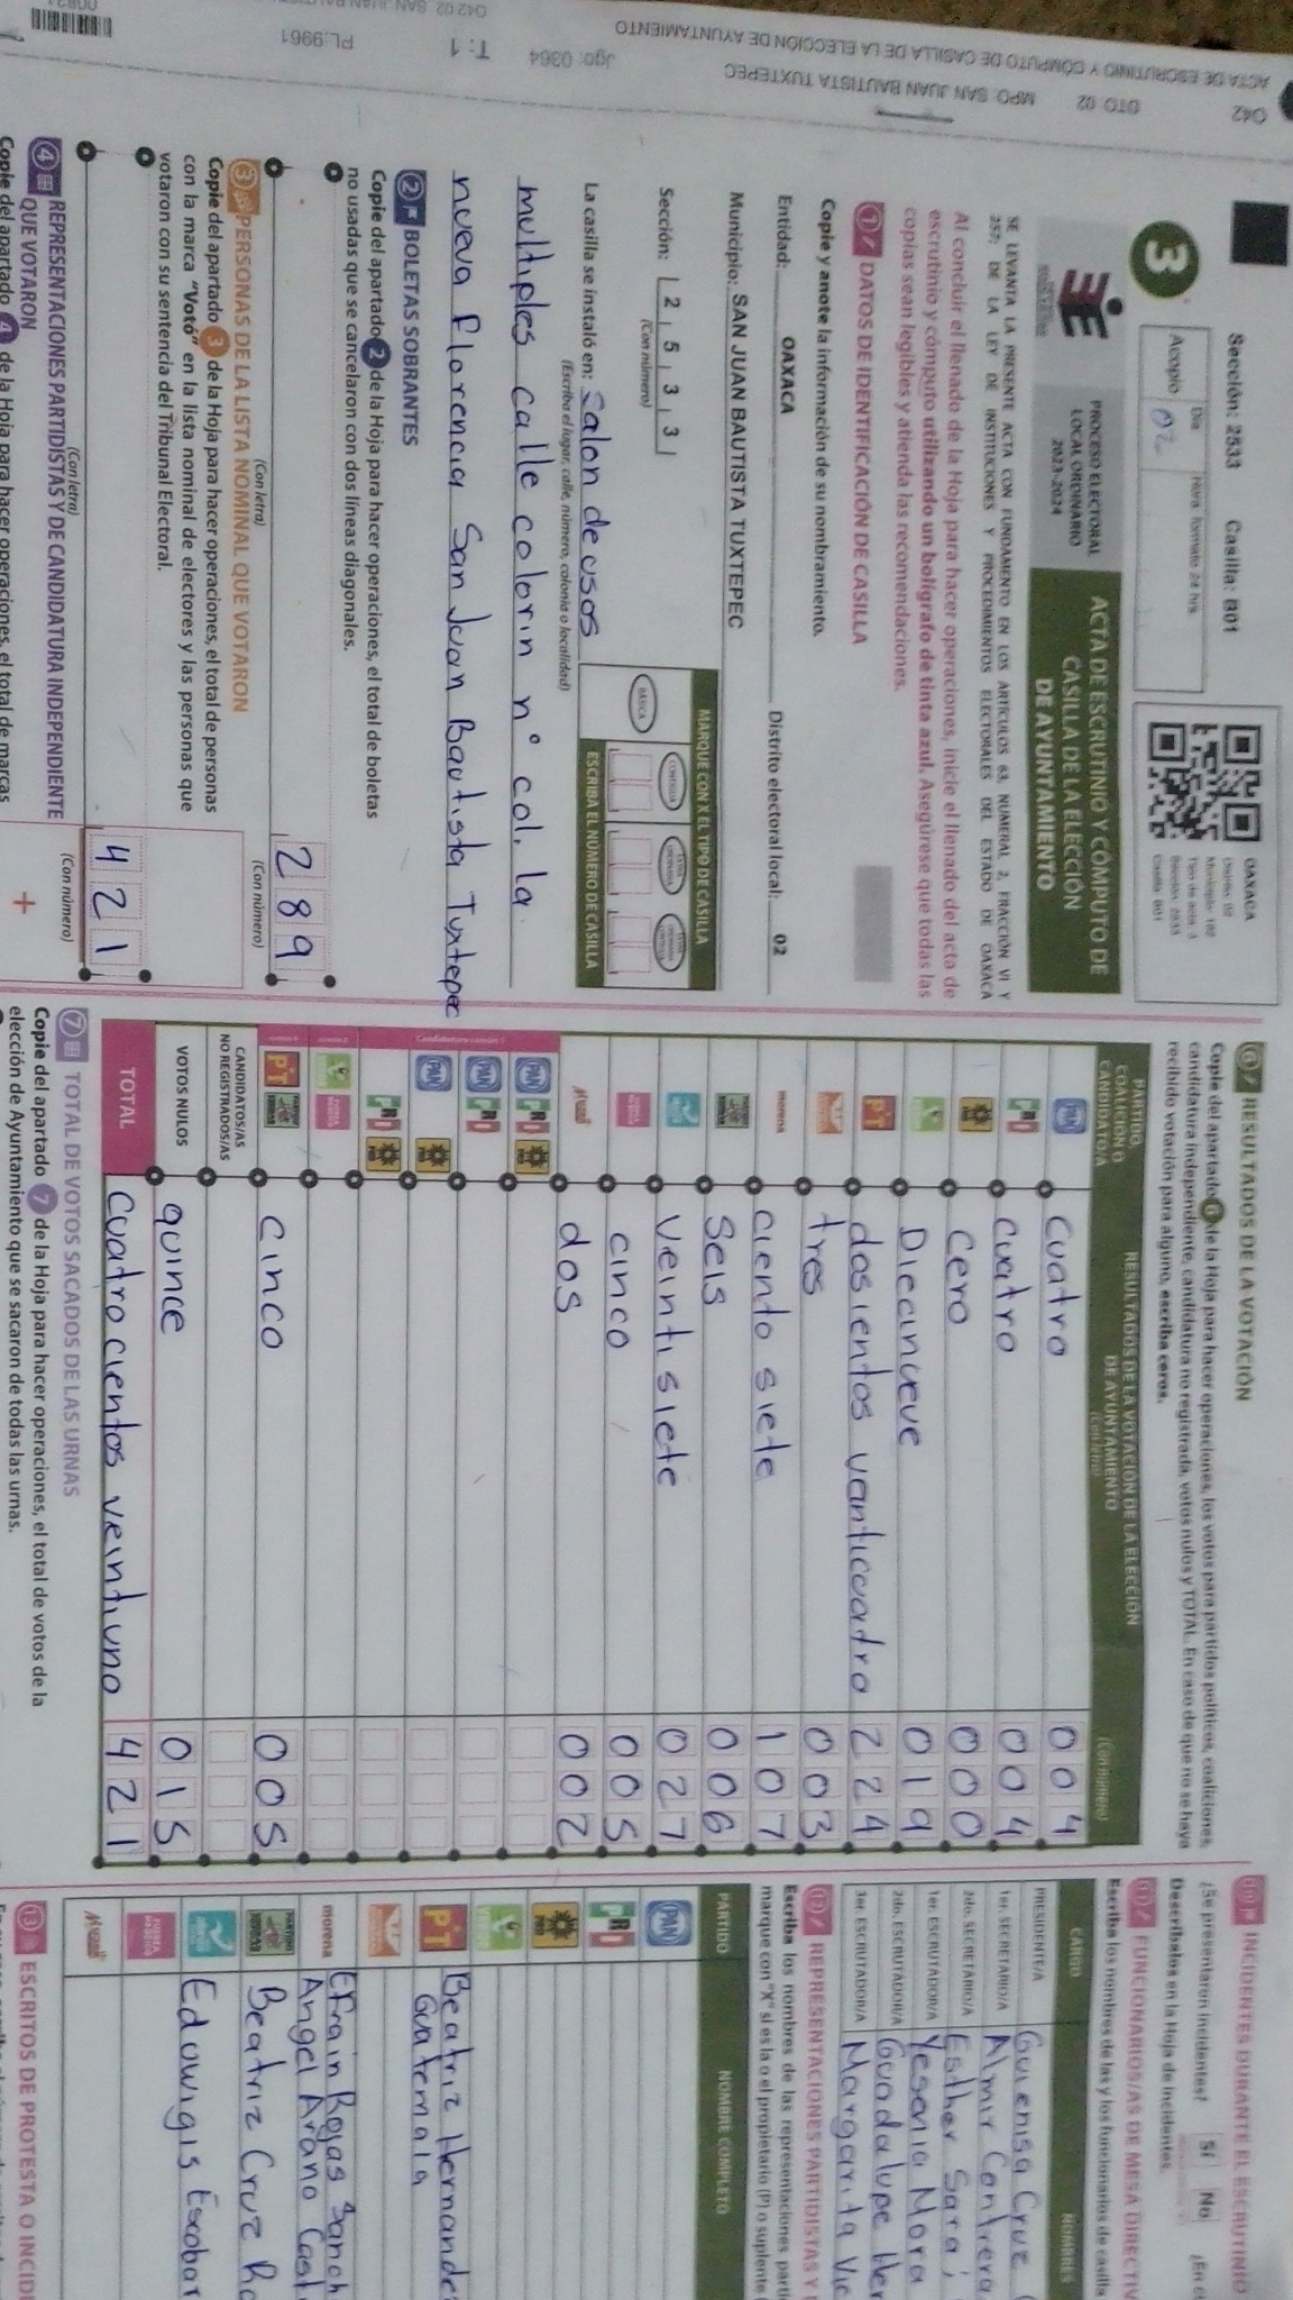 ACTA DE ESCRUTINIO Y CÓMPUTO DE CASILLA DE LA ELECCIÓN DE AYUNTAMIENTO
042 DTO 02 MPO. SAN JUAN BAUTISTA TUXTEPEC
Jgo: 0364 T: 1 PL:9961
Sección: 2533 Casilla: B01
Día Hora formato 24 hrs.
Acopio 02
OAXACA
Distrito: 02
Municipio: 182
Tipo de acta: 3
Sección: 2533
Casilla: B01
3
PROCESO ELECTORAL
LOCAL ORDINARIO
2023-2024
ACTA DE ESCRUTINIO Y CÓMPUTO DE
CASILLA DE LA ELECCIÓN
DE AYUNTAMIENTO
SE LEVANTA LA PRESENTE ACTA CON FUNDAMENTO EN LOS ARTÍCULOS 63, NUMERAL 2, FRACCIÓN VI Y
257; DE LA LEY DE INSTITUCIONES Y PROCEDIMIENTOS ELECTORALES DEL ESTADO DE OAXACA
Al concluir el llenado de la Hoja para hacer operaciones, inicie el llenado del acta de
escrutinio y cómputo utilizando un bolígrafo de tinta azul. Asegúrese que todas las
copias sean legibles y atienda las recomendaciones.
1 DATOS DE IDENTIFICACIÓN DE CASILLA
Copie y anote la información de su nombramiento.
Entidad: OAXACA Distrito electoral local: 02
Municipio: SAN JUAN BAUTISTA TUXTEPEC
Sección: 2533
(Con número)
MARQUE CON X EL TIPO DE CASILLA
BÁSICA CONTIGUA
ESCRIBA EL NÚMERO DE CASILLA
La casilla se instaló en: Salon de usos
(Escriba el lugar, calle, número, colonia o localidad)
multiples calle colorin n° col. la
nueva florencia San Juan Bautista Tuxtepec
2 BOLETAS SOBRANTES
Copie del apartado 2 de la Hoja para hacer operaciones, el total de boletas
no usadas que se cancelaron con dos líneas diagonales.
289
(Con letra) (Con número)
3 PERSONAS DE LA LISTA NOMINAL QUE VOTARON
Copie del apartado 3 de la Hoja para hacer operaciones, el total de personas
con la marca “Votó” en la lista nominal de electores y las personas que
votaron con su sentencia del Tribunal Electoral.
421
(Con letra) (Con número)
4 REPRESENTACIONES PARTIDISTAS Y DE CANDIDATURA INDEPENDIENTE
QUE VOTARON
Copie del apartado 4 de la Hoja para hacer operaciones, el total de marcas
+
6 RESULTADOS DE LA VOTACIÓN
Copie del apartado 6 de la Hoja para hacer operaciones, los votos para partidos políticos, coaliciones,
candidatura independiente, candidatura no registrada, votos nulos y TOTAL. En caso de que no se haya
recibido votación para alguno, escriba ceros.
PARTIDO, COALICIÓN O CANDIDATO/A
RESULTADOS DE LA VOTACIÓN DE LA ELECCIÓN
DE AYUNTAMIENTO
(Con letra) (Con número)
PAN Cuatro 004
PRI Cuatro 004
PRD Cero 000
Diecinueve 019
PT dosientos vanticuatro 224
tres 003
morena ciento siete 107
Seis 006
Veintisiete 027
cinco 005
dos 002
PAN PRI PRD
PAN PRI
PAN PRD
PRI PRD
PT cinco 005
CANDIDATOS/AS
NO REGISTRADOS/AS
VOTOS NULOS quince 015
TOTAL Cuatrocientos veintiuno 421
7 TOTAL DE VOTOS SACADOS DE LAS URNAS
Copie del apartado 7 de la Hoja para hacer operaciones, el total de votos de la
elección de Ayuntamiento que se sacaron de todas las urnas.
10 INCIDENTES DURANTE EL ESCRUTINIO
¿Se presentaron incidentes? Sí No
Descríbalos en la Hoja de incidentes.
11 FUNCIONARIOS/AS DE MESA DIRECTIV
Escriba los nombres de las y los funcionarios de casilla
CARGO NOMBRES
PRESIDENTE/A Guiensa Cruz
1er. SECRETARIO/A Almir Contrera
2do. SECRETARIO/A Esther Sarai
1er. ESCRUTADOR/A Yesenia Mora
2do. ESCRUTADOR/A Guadalupe Her
3er. ESCRUTADOR/A Margarita Vic
12 REPRESENTACIONES PARTIDISTAS Y
Escriba los nombres de las representaciones parti
marque con "X" si es la o el propietario (P) o suplente
PARTIDO NOMBRE COMPLETO
PAN
PRI
PRD
PT Beatriz Hernande
Guatemala
morena Efrain Rojas Sanch
Angel Arano Cast
Beatriz Cruz Ro
Eduwigis Escobar
13 ESCRITOS DE PROTESTA O INCIDE